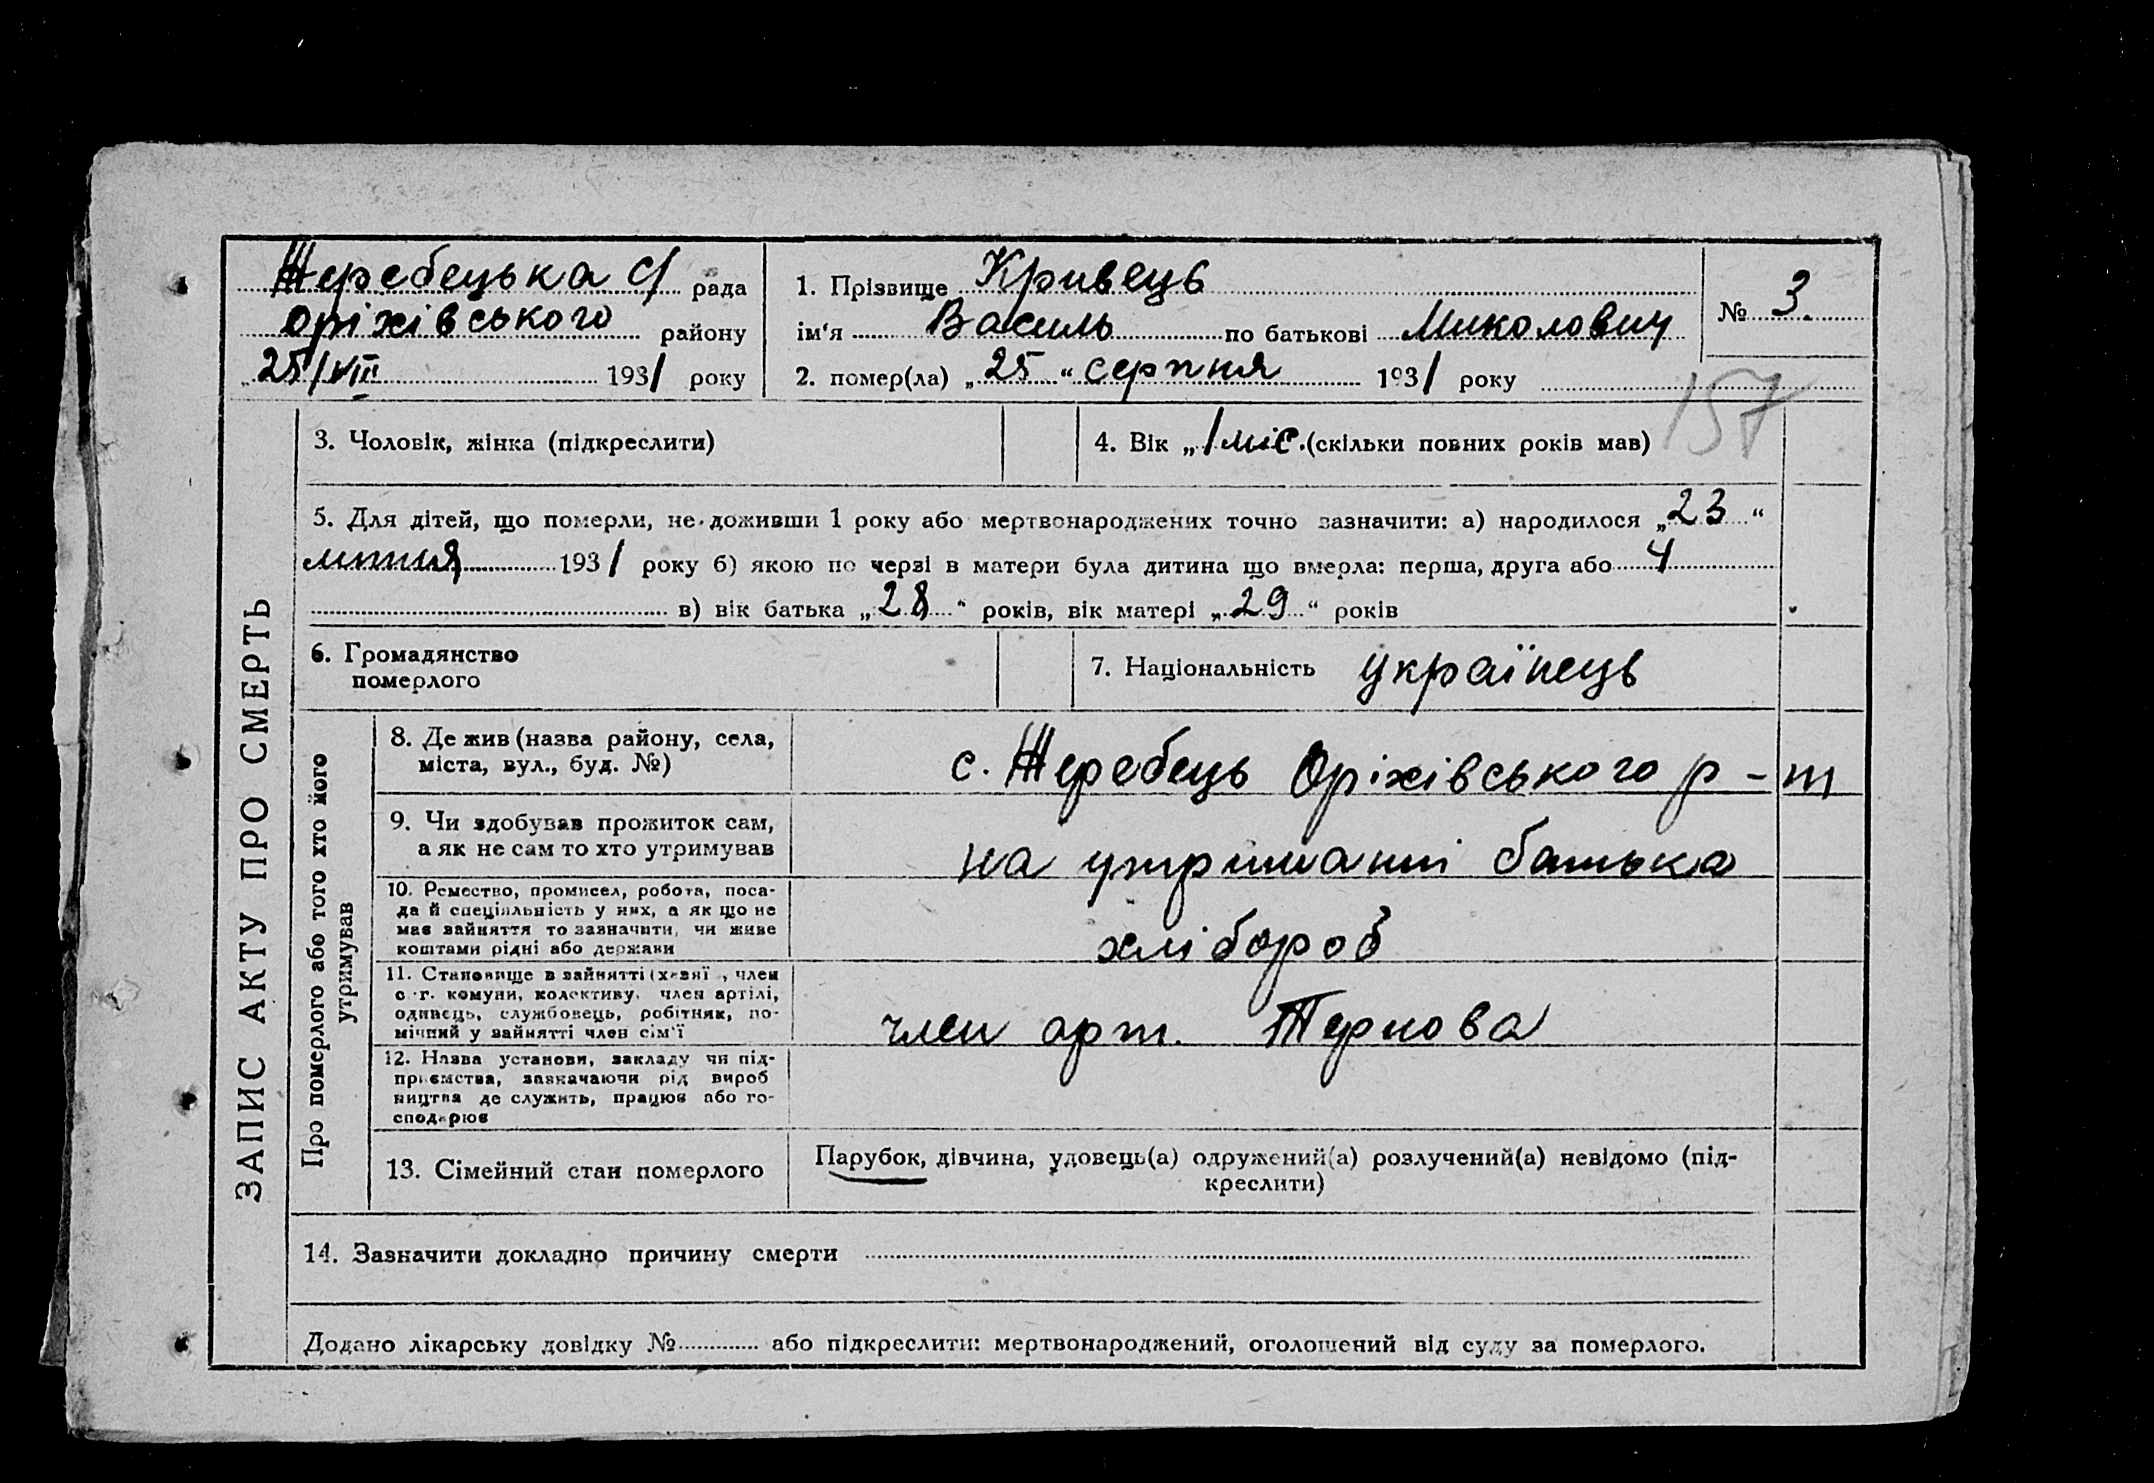 Жеребецька с/ рада
Оріхівського району
„25/VIII 1931 року
1. Прізвище Кривець
ім'я Василь по батькові Миколович
2. помер(ла) „25“ серпня 1931 року
№ 3.
157
ЗАПИС АКТУ ПРО СМЕРТЬ
3. Чоловік, жінка (підкреслити)
4. Вік „1 міс. (скільки повних років мав)
5. Для дітей, що померли, не доживши 1 року або мертвонароджених точно зазначити: а) народилося „23“
липня 1931 року б) якою по черзі в матери була дитина що вмерла: перша, друга або 4
в) вік батька „28“ років, вік матері „29“ років
6. Громадянство
померлого
7. Національність українець
Про померлого або того хто його
утримував
8. Де жив (назва району, села,
міста, вул., буд. №)
с. Жеребець Оріхівського р-ну
9. Чи здобував прожиток сам,
а як не сам то хто утримував
на утриманні батька
10. Ремество, промисел, робота, поса-
да й спеціяльність у них, а як що не
має зайняття то зазначити, чи живе
коштами рідні або держави
хлібороб
11. Становище в зайнятті (хазяї, член
с.-г. комуни, колективу, член артілі,
одинець, службовець, робітник, по-
мічний у зайнятті член сім'ї
член арт.
12. Назва установи, закладу чи під-
приємства, зазначаючи рід вироб
ництва де служить, працює або го-
сподарює
13. Сімейний стан померлого
Парубок, дівчина, удовець(а) одружений(а) розлучений(а) невідомо (під-
креслити)
14. Зазначити докладно причину смерти
Додано лікарську довідку № або підкреслити: мертвонароджений, оголошений від суду за померлого.